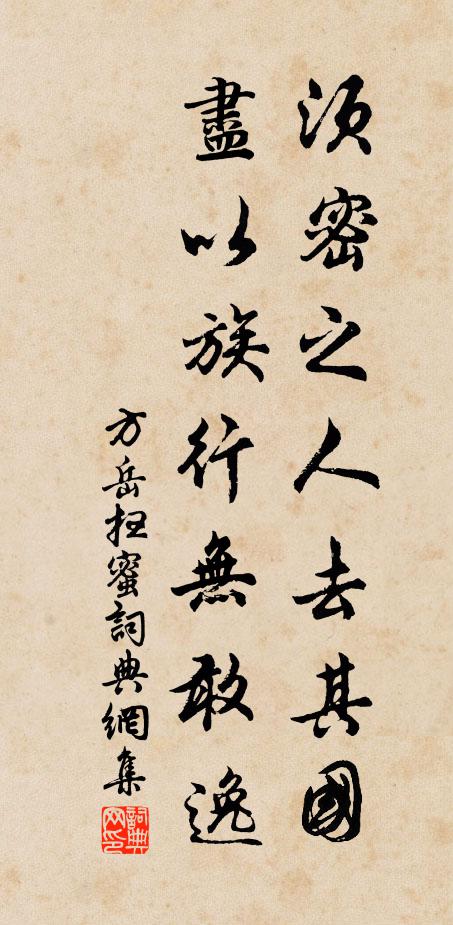 須密之人去其國
盡以族行無敢逸
方岳扭蜜詞典網集
詞典
网印